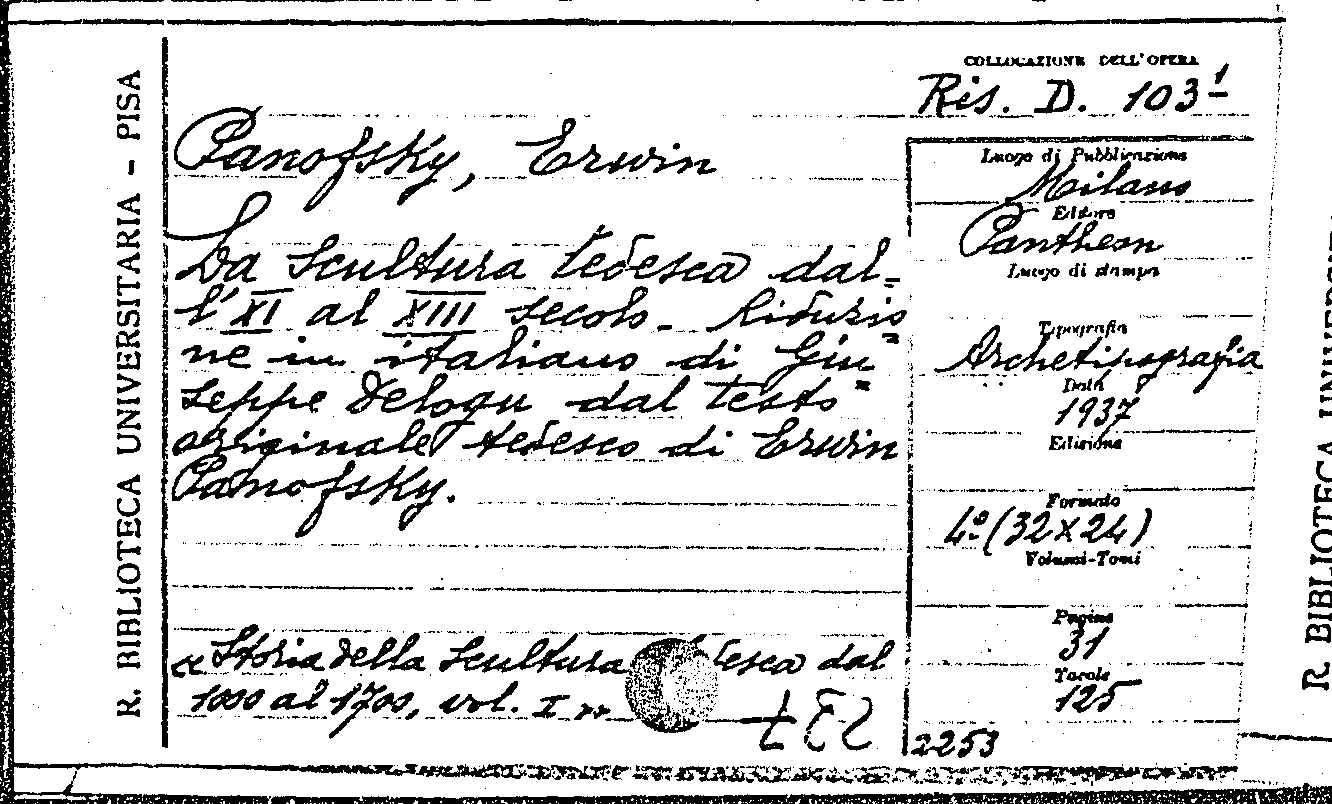 R. BIBLIOTECA UNIVERSITARIA - PISA
COLLOCAZIONE DELL'OPERA
Ris. D. 103¹
Panofsky, Erwin
La scultura tedesca dal-
l'XI al XIII secolo. Riduzio=
ne in italiano di Giu=
seppe Delogu dal testo
originale tedesco di Erwin
Panofsky.
« Storia della scultura tedesca dal
1000 al 1700, vol. I »
Luogo di Pubblicazione
Milano
Editore
Pantheon
Luogo di stampa
Tipografia
Archetipografia
Data
1937
Edizione
Formato
4º (32x24)
Volumi-Tomi
Pagine
31
Tavole
125
2253
R. BIBLIOTECA UNIVER